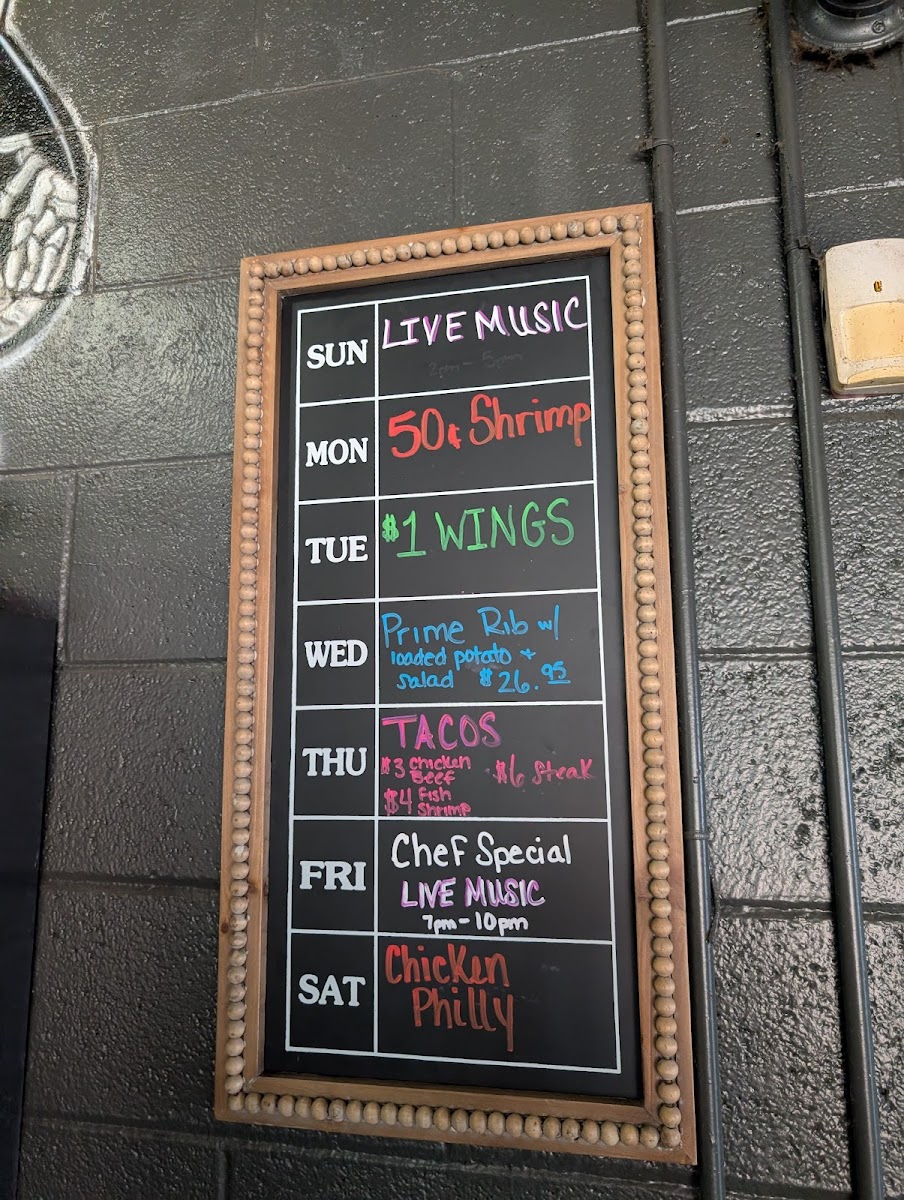 SUN LIVE MUSIC
2pm - 5pm
MON 50¢ Shrimp
TUE $1 WINGS
WED Prime Rib w/
loaded potato +
salad $26.95
THU TACOS
$3 Chicken $6 Steak
Beef
$4 Fish
Shrimp
FRI Chef Special
LIVE MUSIC
7pm - 10pm
SAT Chicken
Philly